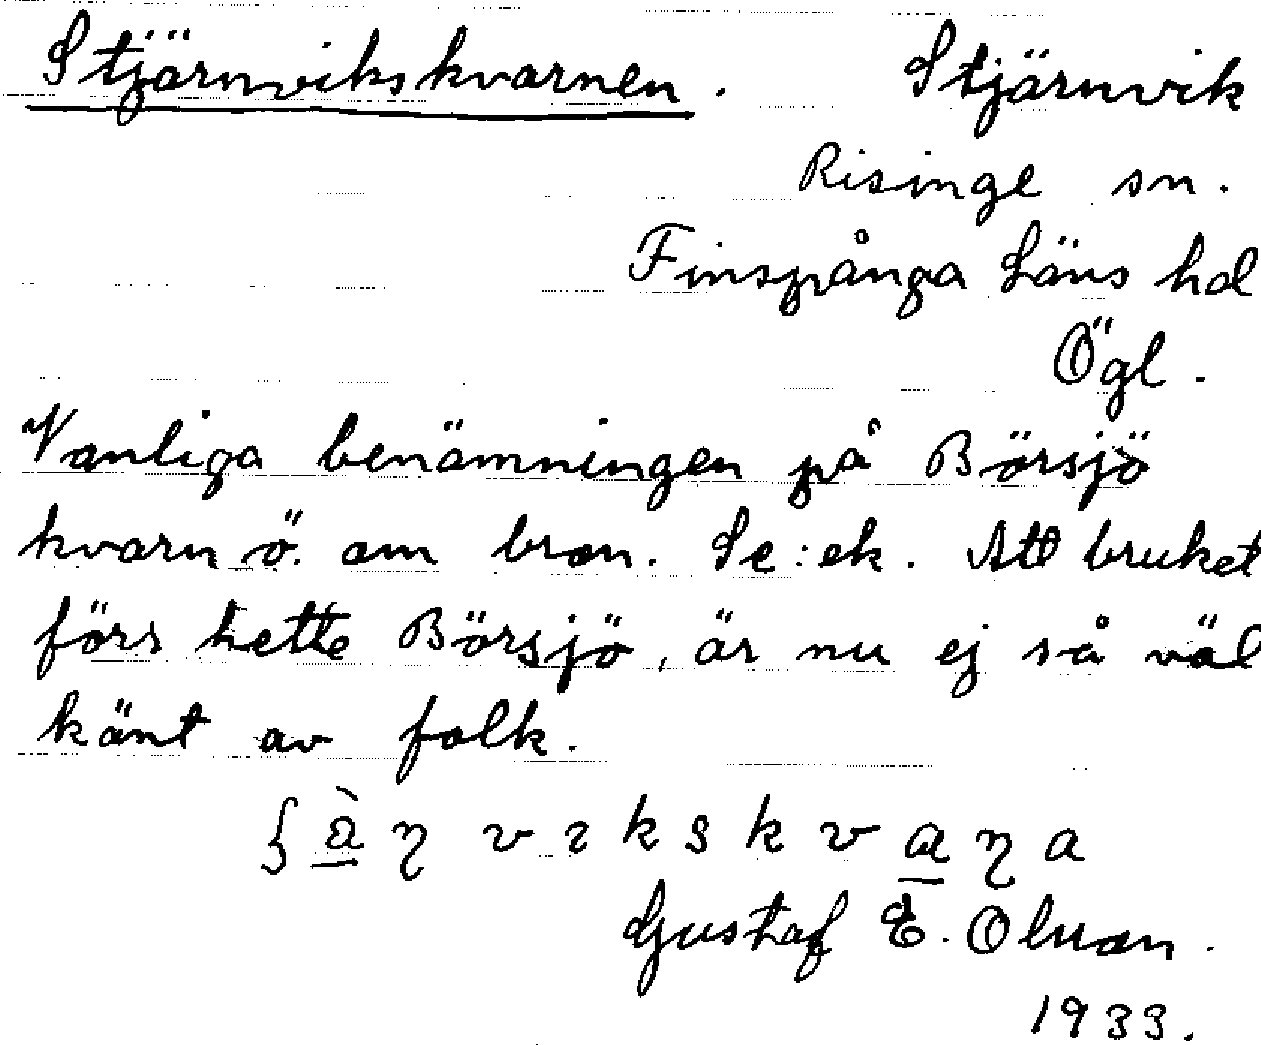 Stjärnvikskvarnen. Stjärnvik
Risinge sn.
Finspånga Läns hd
Ögl.
Vanliga benämningen på Börsjö
kvarn ö. om bron. Se: ek. Att bruket
förr hette Börsjö, är nu ej så väl
känt av folk.
Gustaf E. Olsson.
1933.